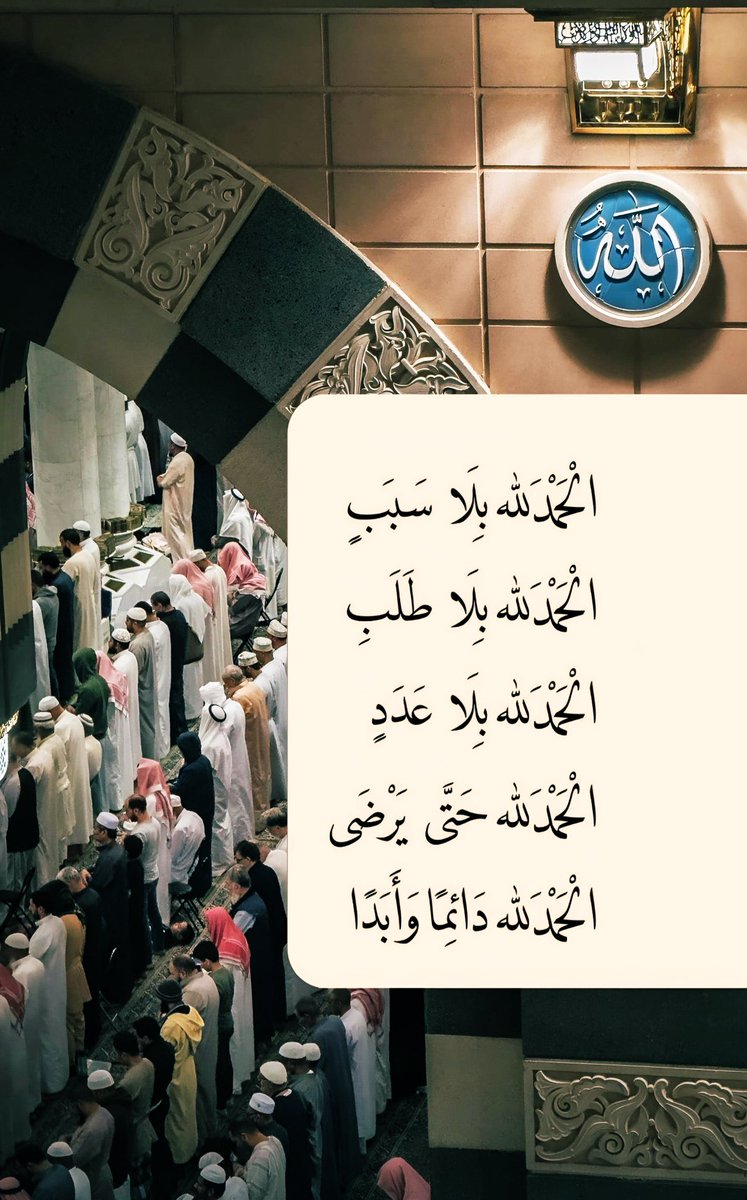 اللهُ
الْحَمْدَلله بِلَا سَبَبٍ
الْحَمْدَلله بِلَا طَلَبِ
الْحَمْدَلله بِلَا عَدَدٍ
الْحَمْدَلله حَتَّى يَرْضَى
الْحَمْدَلله دَائِمًا وَأَبَدًا